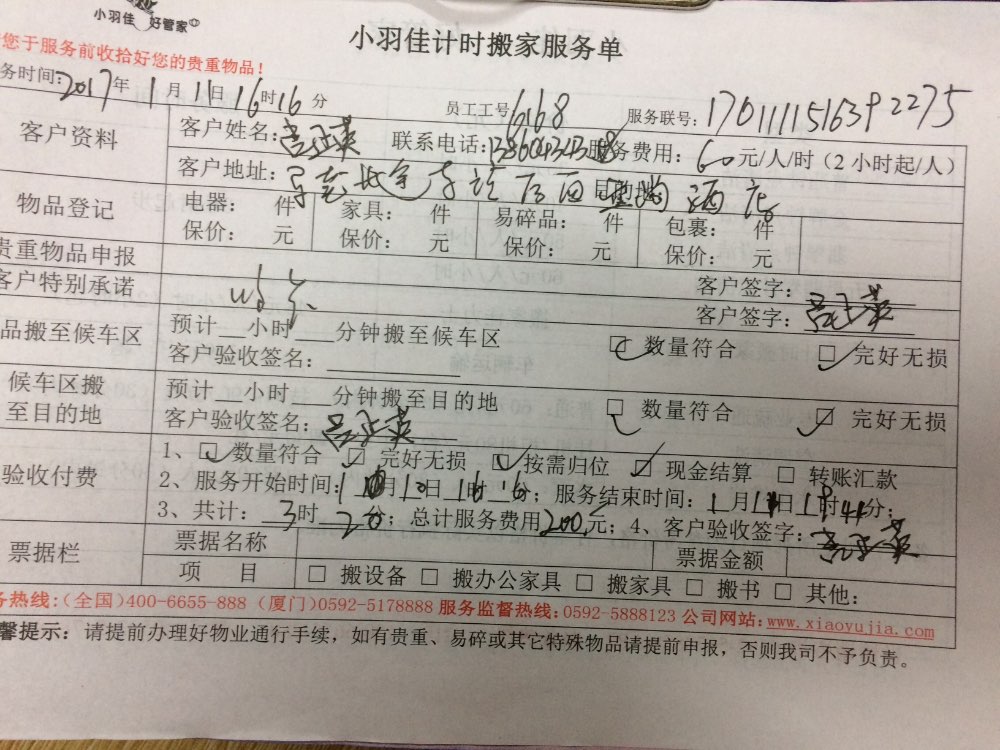 小羽佳 好管家
小羽佳计时搬家服务单
您于服务前收拾好您的贵重物品！
务时间：2017年1月11日16时16分 员工工号6168 服务联号：1701111516392275
客户资料 客户姓名： 联系电话： 服务费用：60元/人/时（2小时起/人）
客户地址：
物品登记 电器： 件 家具： 件 易碎品： 件 包裹： 件
保价： 元 保价： 元 保价： 元 保价： 元
贵重物品申报 客户签字：
客户特别承诺 客户签字：
品搬至候车区 预计 小时 分钟搬至候车区 ☑ 数量符合 ☑ 完好无损
客户验收签名：
候车区搬至目的地 预计 小时 分钟搬至目的地 ☑ 数量符合 ☑ 完好无损
客户验收签名：
验收付费 1、☑ 数量符合 ☑ 完好无损 ☑ 按需归位 ☑ 现金结算 □ 转账汇款
2、服务开始时间： 月 日 时 分；服务结束时间：1月11日 时41分；
3、共计：3时 分；总计服务费用200元；4、客户验收签字：
票据栏 票据名称 票据金额
项 目 □ 搬设备 □ 搬办公家具 □ 搬家具 □ 搬书 □ 其他：
务热线：（全国）400-6655-888（厦门）0592-5178888 服务监督热线：0592-5888123 公司网站：www.xiaoyujia.com
馨提示：请提前办理好物业通行手续，如有贵重、易碎或其它特殊物品请提前申报，否则我司不予负责。